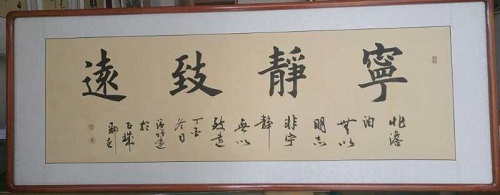 寧靜致遠
非澹
泊
無以
明志
非宁
靜
無以
致遠
丁酉
冬月
於